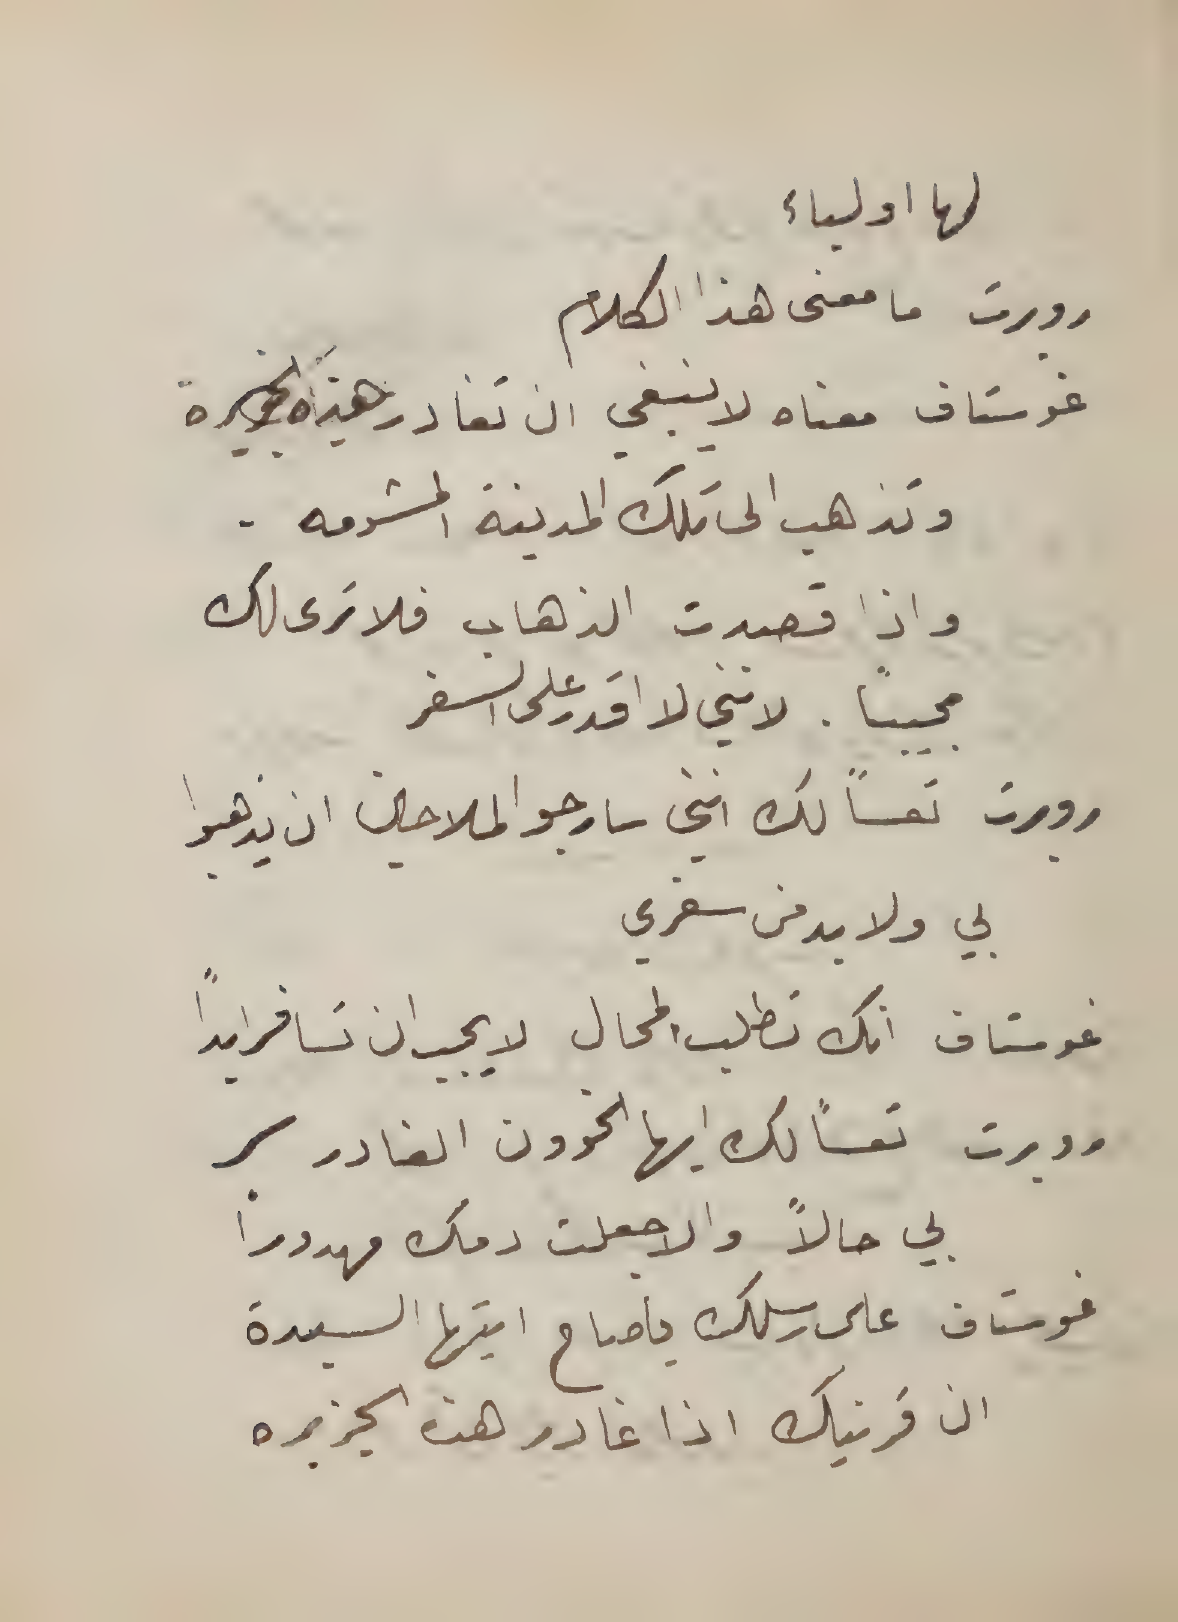 لها اولياء
روبرت ما معنى هذا الكلام
غوستاف معناه لا ينبغي ان تغادر هذه الجزيرة
وتذهب الى تلك المدينة المشومه .
واذا قصدت الذهاب فلا ترى لك
مجيباً . لانني لا اقدر على السفر
روبرت تعساً لك انني سارجوا الملاحين ان يذهبوا
بي ولا بد من سفري
غوستاف انك تطلب المحال لا يجب ان تسافر ابداً
روبرت تعساً لك ايها الخوون الغادر سر
بي حالاً والا جعلت دمك مهدوراً
غوستاف على رسلك ياصاح ايتها السيدة
ان قرنيك اذا غادر هذه الجزيره